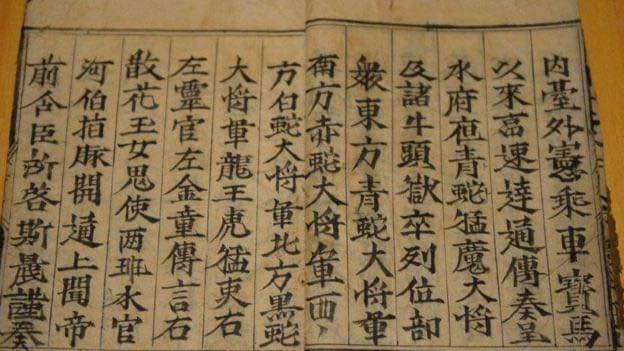 内臺外憲乘車寳馬
以來速達通傳奏呈
水府青蛇猛魔大将
及諸牛頭獄卒列位部
衆東方青蛇大将軍
南方赤蛇大将軍西
方白蛇大将軍北方黒蛇
大将軍龍王虎猛吏右
左靈官左金童傳言右
散花玉女鬼使两班水官
河伯指脉開通上聞帝
前含臣所啓斯晨謹奏